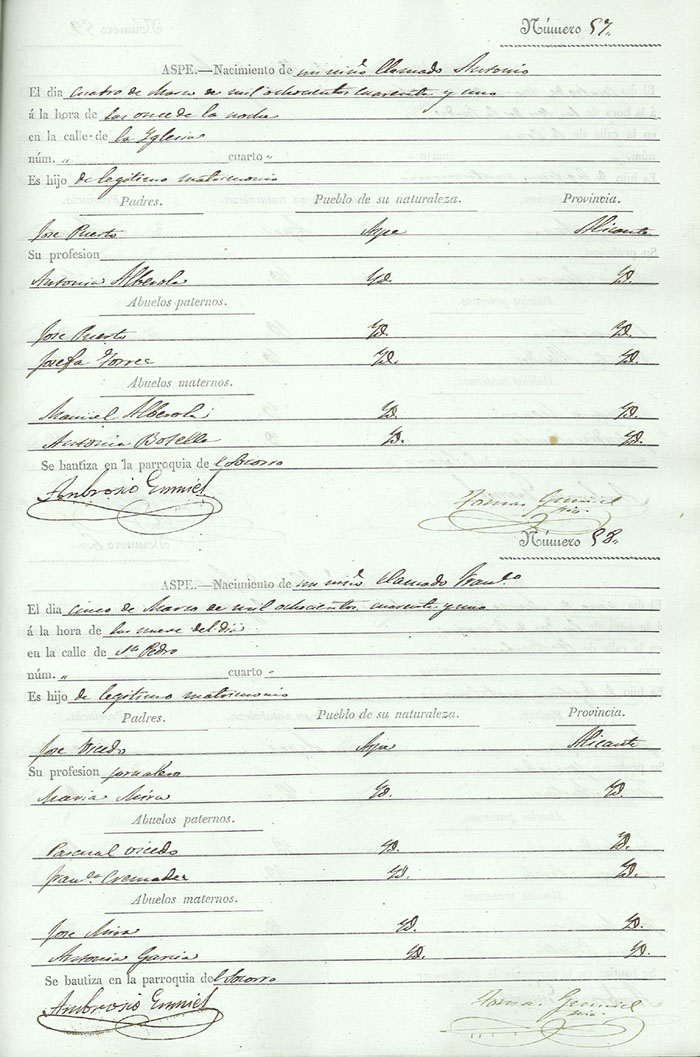 Número 57.
ASPE.—Nacimiento de un niño llamado Antonio
El dia cuatro de Marzo de mil ochocientos cuarenta y uno
á la hora de las once de la noche
en la calle de la Yglesia
núm. „ cuarto „
Es hijo de legitimo matrimonio
Padres. Pueblo de su naturaleza. Provincia.
Jose Puerto Aspe Alicante
Su profesion
Antonia Alberola Yd. Yd.
Abuelos paternos.
Jose Puerto Yd. Yd.
Josefa Torres Yd. Yd.
Abuelos maternos.
Manuel Alberola Yd. Yd.
Antonia Botella Yd. Yd.
Se bautiza en la parroquia del Socorro
Ambrosio
Número 58.
ASPE.—Nacimiento de un niño llamado Franco.
El dia cinco de Marzo de mil ochocientos cuarenta y uno
á la hora de las nueve del dia
en la calle de Sn. Pedro
núm. „ cuarto „
Es hijo de legitimo matrimonio
Padres. Pueblo de su naturaleza. Provincia.
Jose Vicedo Aspe Alicante
Su profesion jornalero
Maria Mira Yd. Yd.
Abuelos paternos.
Pascual Vicedo Yd. Yd.
Franca. Cremades Yd. Yd.
Abuelos maternos.
Jose Mira Yd. Yd.
Antonia Garcia Yd. Yd.
Se bautiza en la parroquia del Socorro
Ambrosio